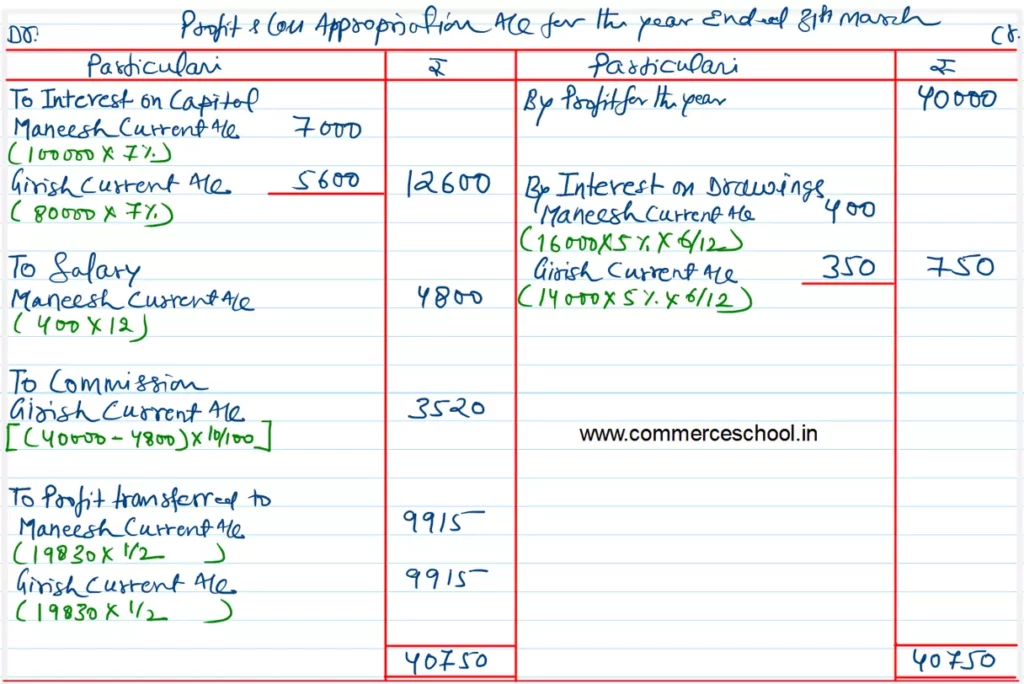 Profit & Loss Appropriation A/c for the year Ended 31th March
Dr.
Cr.
Particulars ₹ Particulars ₹
To Interest on Capital
Maneesh Current A/c 7000
(100000 X 7%)
Girish Current A/c 5600 12600
(80000 X 7%)
To Salary
Maneesh Current A/c 4800
(400 X 12)
To Commission
Girish Current A/c 3520
[(40000 - 4800) X 10/100]
To Profit transferred to
Maneesh Current A/c 9915
(19830 X 1/2 )
Girish Current A/c 9915
(19830 X 1/2 )
40750
By Profit for the year 40000
By Interest on Drawings
Maneesh Current A/c 400
(16000X5% X 6/12)
Girish Current A/c 350 750
(14000X5% X 6/12)
www.commerceschool.in
40750